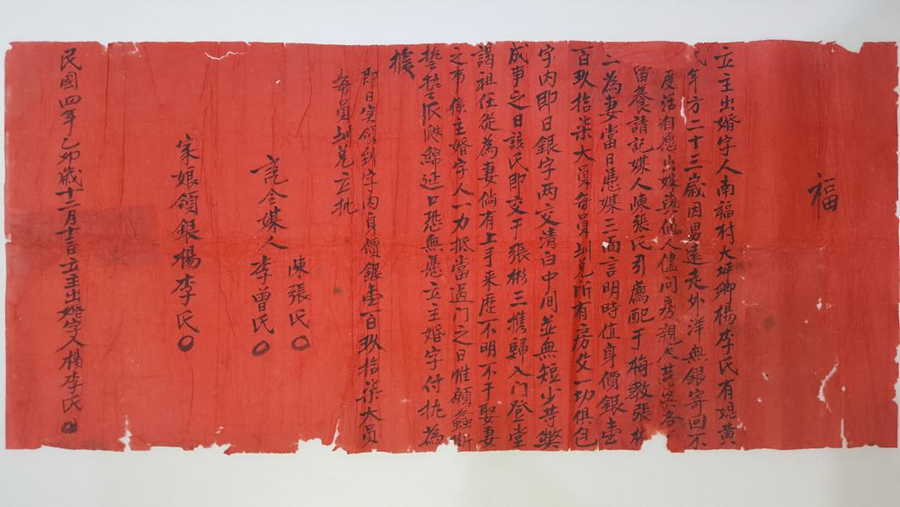 福
立主出婚字人南福村大坪鄉楊李氏有媳黃
氏年方二十三歲因男遠走外洋無銀寄回不
度活有愿出嫁與他人儘問房親人等
留養請記媒人陳張氏引薦配于梅教張
二為妻當日憑媒三面言明時值身價銀壹
百玖拾柒大員每員兌所有房一切俱包
字內即日銀字兩交清白中間並無短少等弊
成事之日該氏即交于張彬三攜歸入門登堂
謁祖任從為妻倘有上手來歷不明不干娶妻
之事係主婚字人一力抵當過門之日惟願螽斯
蟄蟄瓜瓞綿延口恐無憑立主婚字付執為
據
即日實領到字內身價銀壹百玖拾柒大員
每員兌立批
陳張氏〇
說合媒人李曾氏〇
家娘領銀楊李氏〇
民國四年乙卯歲十二月十立主出婚字人楊李氏〇